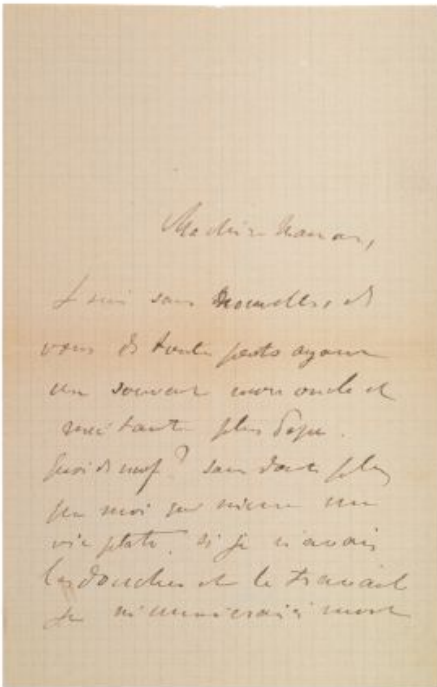 Ma chère Maman,
Je suis sans nouvelles de
vous de toute part ayant
vu souvent mon oncle et
ma tante plus Papa.
Quoi de neuf? sans doute plus
que moi qui mène une
vie plate. si je n'avais
les douches et le travail
je m'ennuierais à mort